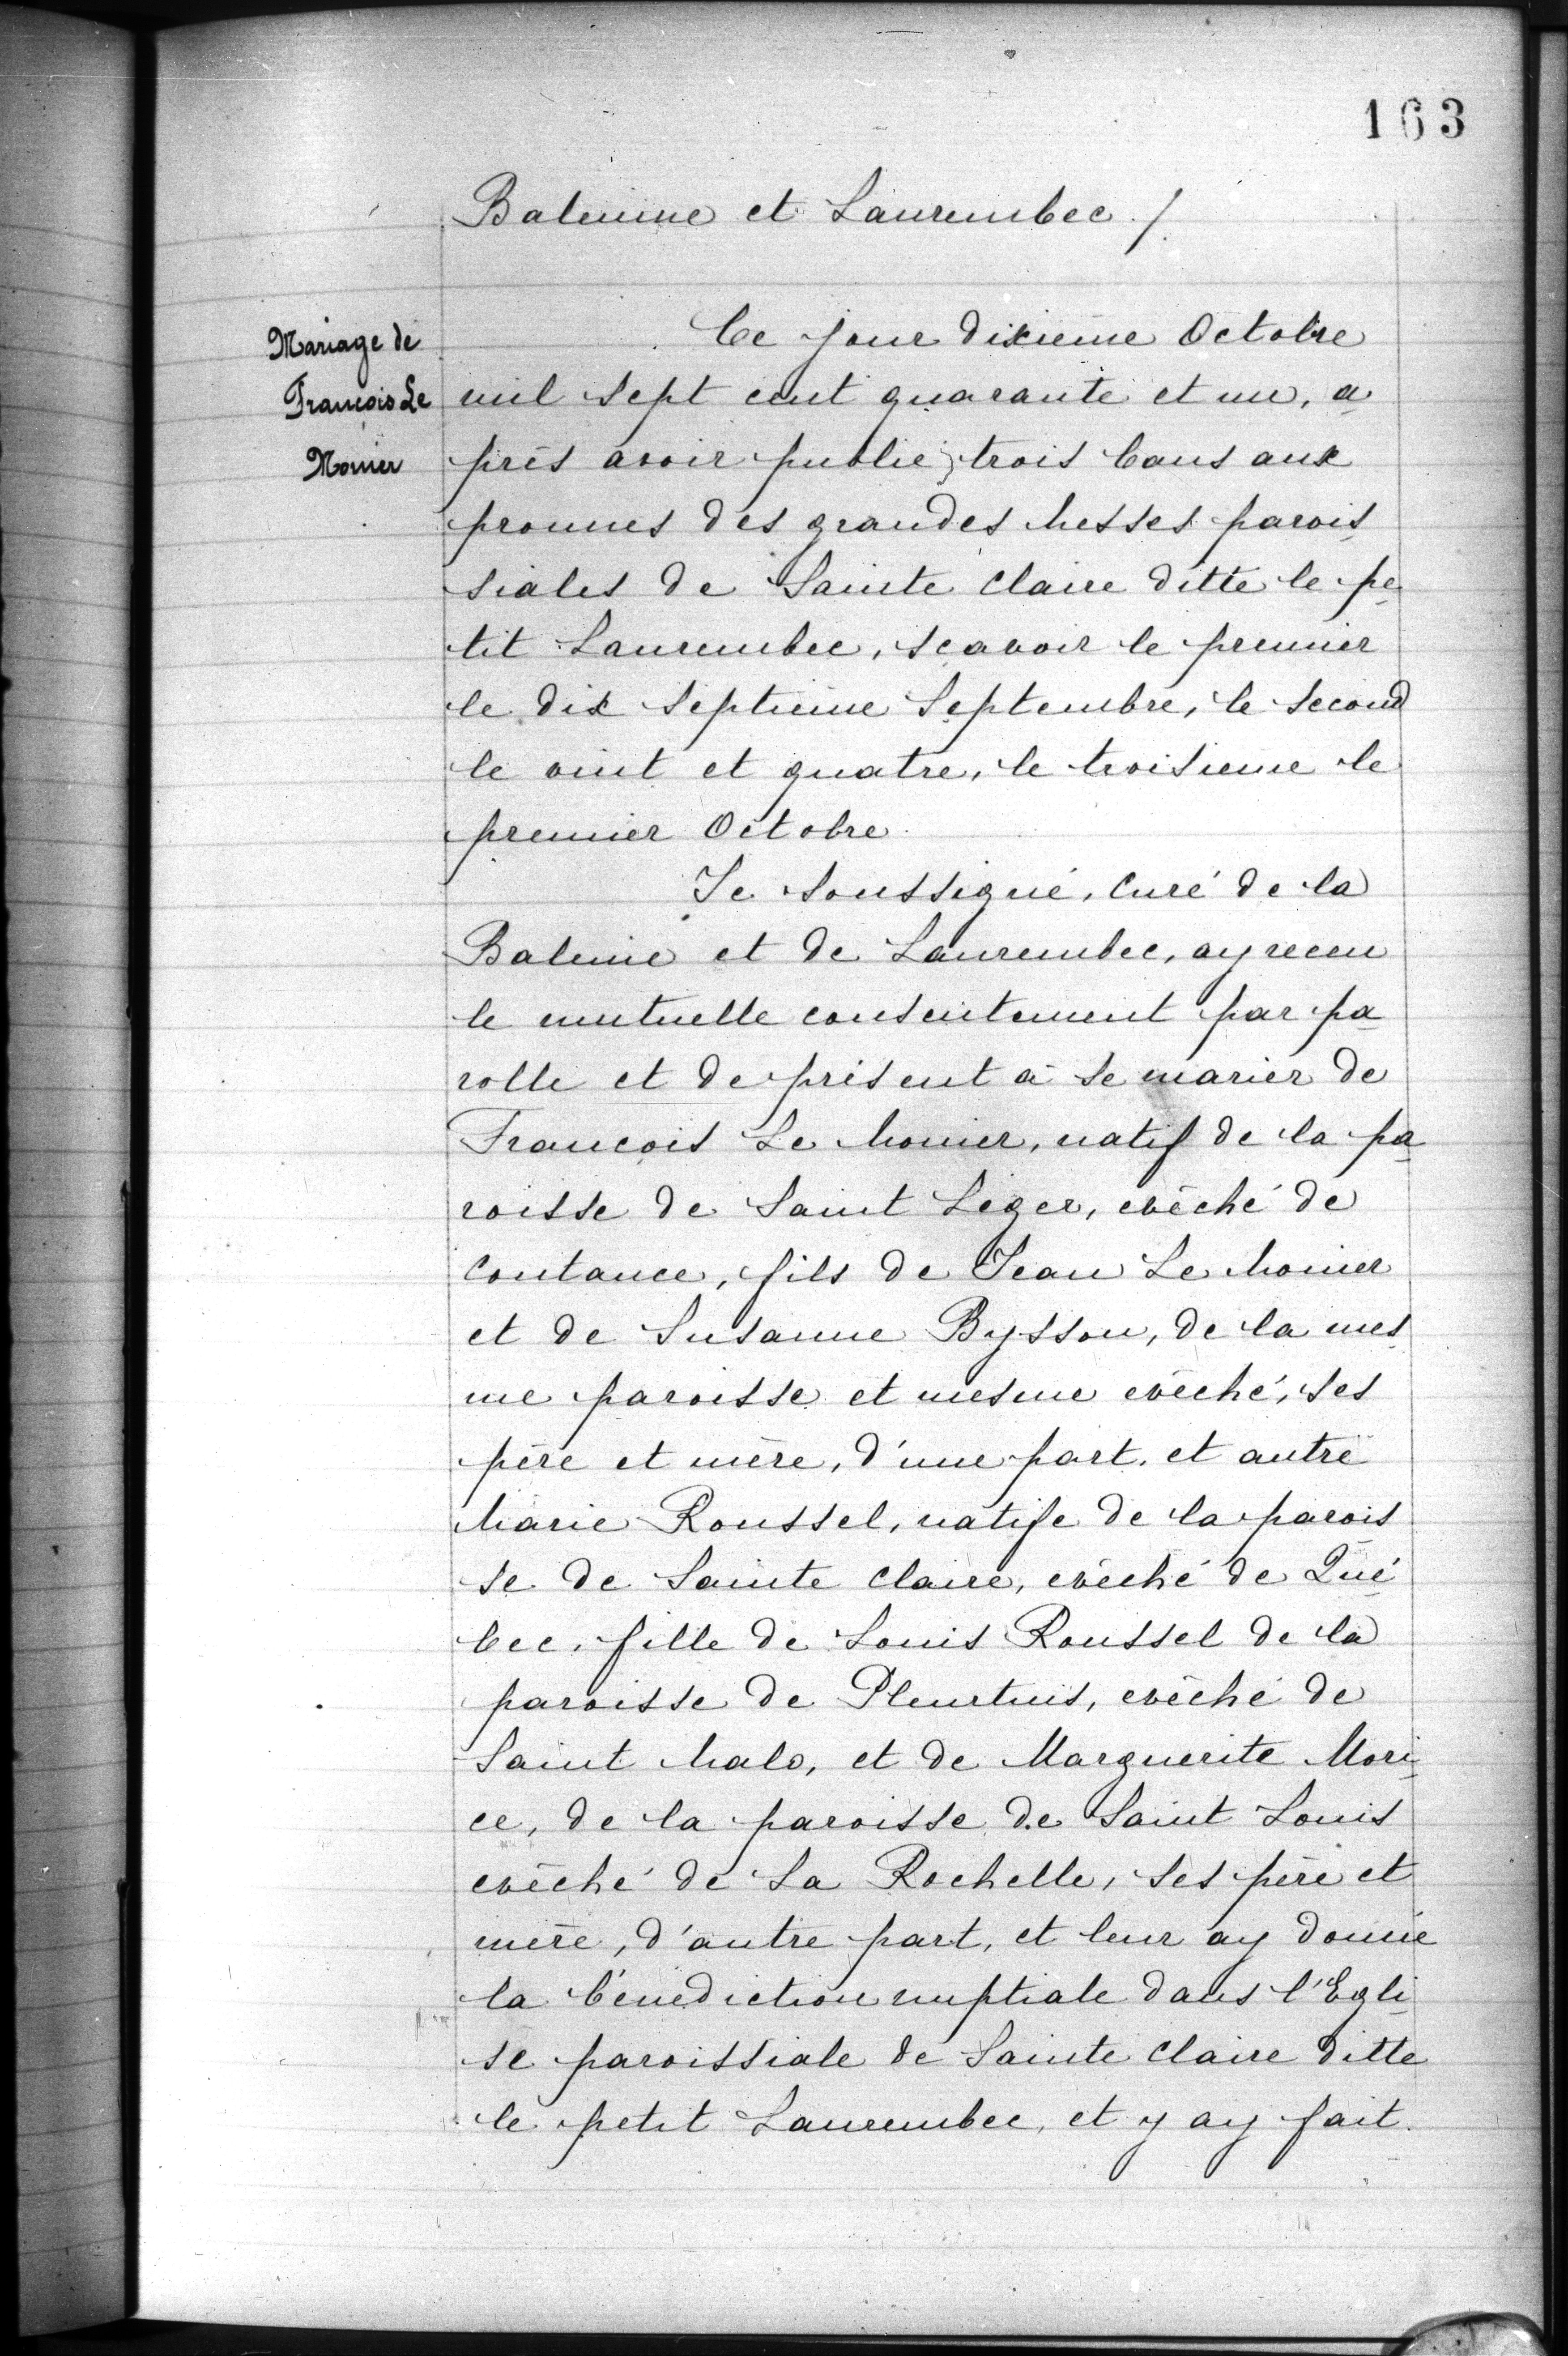 163
Baleinne et Laurembec /.
Mariage de
François Le
Monier
Ce jour dixieme Octobre
mil sept cent quarante et un, a
près avoir publié trois bans aux
pronnes des grandes Messes parois
siales de Sainte Claire ditte le pe
tit Laurembec, scavoir le premier
le dix septieme Septembre, le second
le vint et quatre, le troisieme le
premier Octobre.
Je soussigné, Curé de la
Baleine et de Laurembec, ay receu
le mutuelle consentement par pa
rolle et de présent à se marier de
François Le Monier, natif de la pa
roisse de Saint Leger, evêché de
Coutance, fils de Jean Le Monier
et de Susanne Bysson, de la mes
me paroisse et mesme evêché, ses
père et mère, d'une part, et autre
Marie Roussel, natife de la parois
se de Sainte Claire, evêché de Qué
bec, fille de Louis Roussel de la
paroisse de Pleurtuis, evêché de
Saint Malo, et de Marguerite Mori
ce, de la paroisse de Saint Louis
evêché de La Rochelle, ses père et
mère, d'autre part, et leur ay donné
la bénédiction nuptiale dans l'Egli
se paroissiale de Sainte Claire ditte
le petit Laurembec, et y ay fait